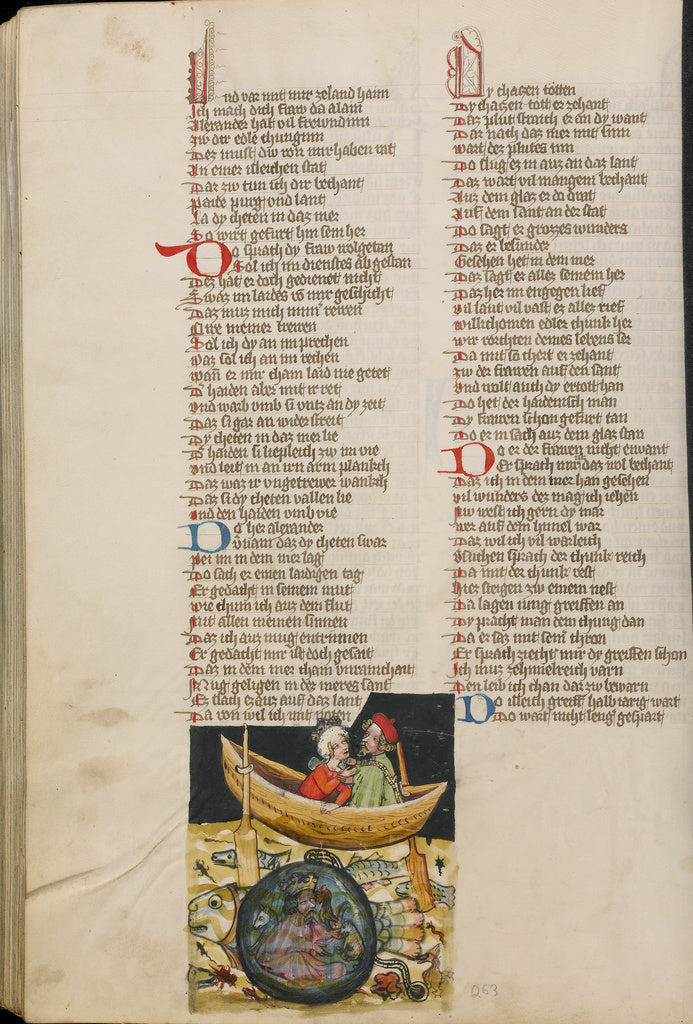 Und var mit mir zeland haim
Ich mach dich fraw da alain
Alexander hat vil frewndinn
Zw dir edle chunginn
Der must dw von mir haben rat
In einer isleichen stat
Daz zw tun ich dir bechant
Paide purg vnd lant
La dy cheten in daz mer
So wirt gefurt hin sein her
Do sprach dy fraw wolgetan
Sol ich im dienstes ab gestan
Des hat er doch gedienet nicht
Daz muz mich imm rewen
Sol ich dy an im prechen
Waz sol ich an im rechen
Wan er mir cham laid nie getet
D haiden aber mit ir ret
Vnd warb vmb si vntz an dy zeit
Daz si gar an wider streit
Dy cheten in daz mer lie
D haiden si liepleich zw im vie
Vnd leit in an irn arm plankch
Daz waz ir vngetrewer wankch
Daz si dy cheten vallen lie
Vnd den haiden vmb vie
Do her alexander
Vernam daz dy cheten swar
Pei im in dem mer lag
Do sach er einen laidigen tag
Er gedacht in seinem mut
Wie chum ich auz dem flut
Mit allen meinen sinnen
Daz ich auz mug entrinnen
Er gedacht mir ist doch gesait
Daz in dem mer cham vnrainchait
Mug geligen in des meres sant
Ez slach ez auz auf daz lant
Da von wil ich mit
Dy chaczen totten
Dy chaczen tott er zehant
Daz plut straich er an dy want
Dar nach daz mer mit sinn
Wart des plutes inn
Do slug ez in auz an daz lant
Daz wart vil mangem bechant
Auz dem glaz er do drat
Auf dem sant an der stat
Do sagt er grozzes wunders
Daz er besunder
Gesehen het in dem mer
Daz sagt er aller seinem her
Daz her im engegen lief
Vil laut vil vast ez alles rief
Willichomen edler chunk her
Wir vorchten deines lebens ser
Da mit so chert er zehant
Zw der frawen auf den sant
Vnd wolt auch dy ertott han
Do het der haidenisch man
Dy frawen schon gefurt tan
Do er in sach auz dem glaz stan
Do er der frawen nicht envant
Er sprach mir daz wol bechant
Daz ich in dem mer han gesehen
Vil wunders des mag ich iehen
Nw west ich gern dy mar
Wer auf dem himel war
Daz wil ich vil warleich
Versuchen sprach der chunk reich
Da mit der chunk rest
Hiez steigen zw einem nest
Da lagen iung greiffen an
Dy pracht man dem chunig dan
Da er saz mit seim thron
Er sprach ziecht mir dy greiffen schon
Ich muz ze himelreich varn
Den leib ich chan dar zw bewarn
Do isleich greiff halb iarig wart
Do wart nicht leng gespart
263